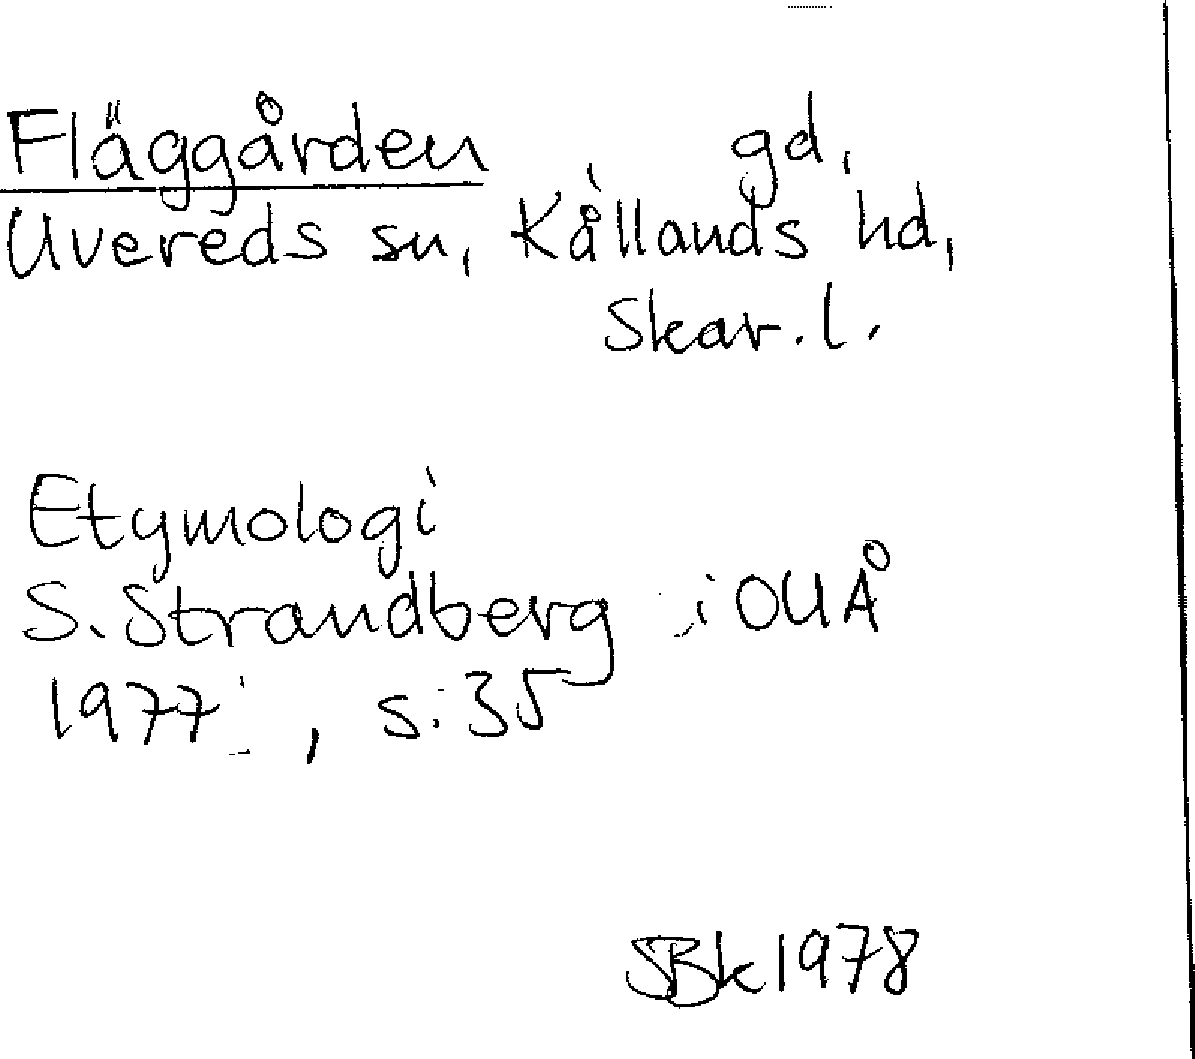 Fläggården gd,
Uvereds sn, Kållands hd,
Skar. l.
Etymologi
S. Strandberg i OUÅ
1977, s. 35
SBk 1978